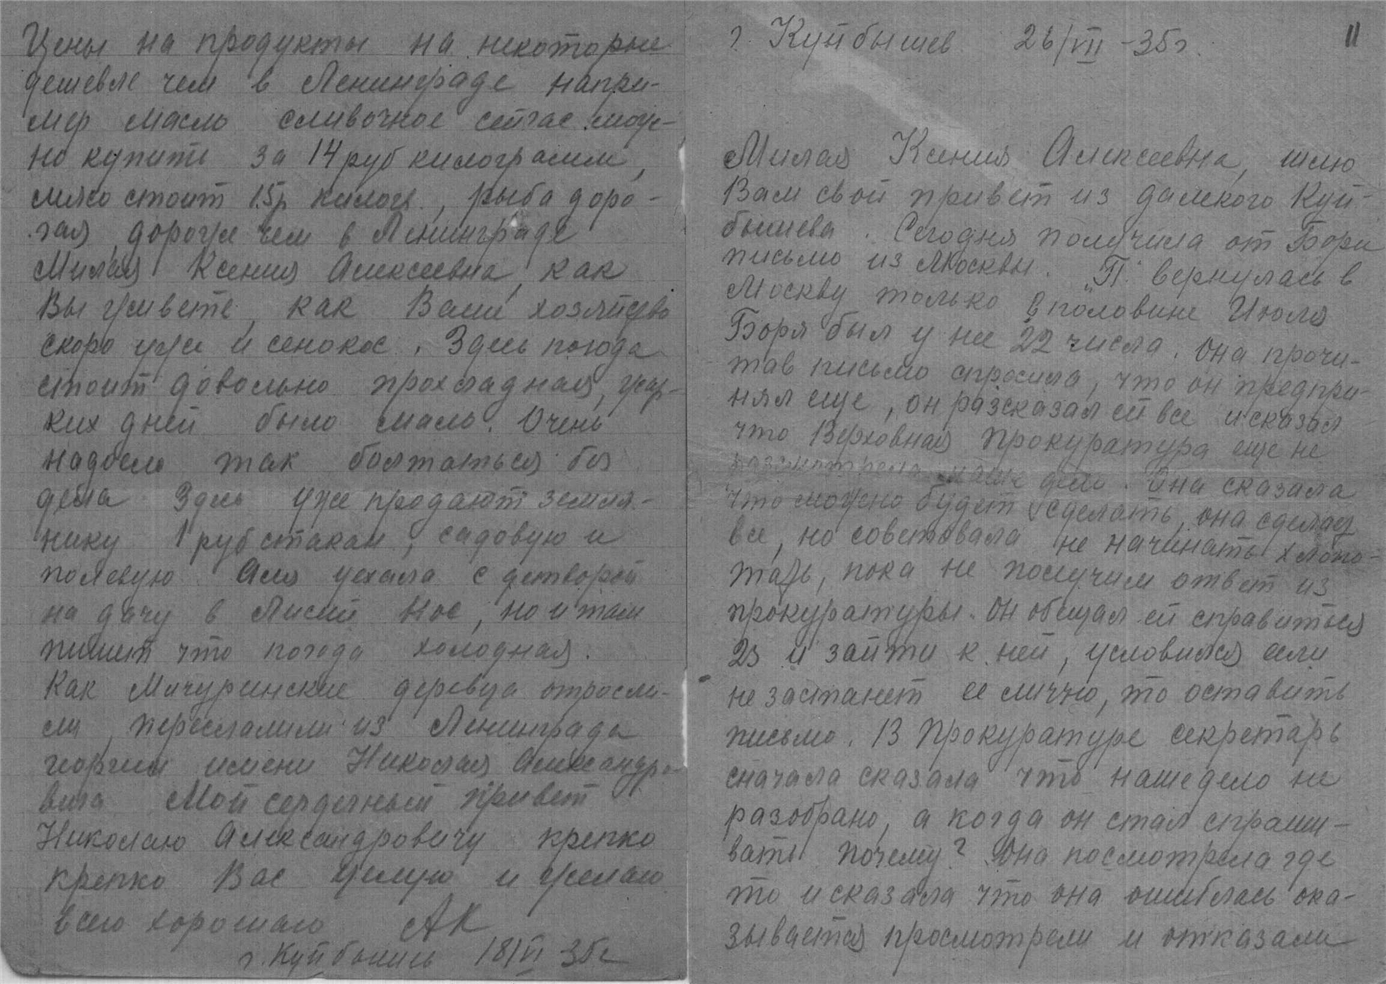 Цены на продукты на некоторые
дешевле чем в Ленинграде напри-
мер масло сливочное сейчас мож-
но купить за 14 руб килограмм,
мясо стоит 15р килогр., рыба доро-
гая, дороже чем в Ленинграде
Милая Ксения Алексеевна, как
Вы живете, как Ваше хозяйство
скоро уже и сенокос. Здесь погода
стоит довольно прохладная, жар-
ких дней было мало. Очень
надоело так болтаться без
дела Здесь уже продают земля-
нику 1 руб стакан, садовую и
полевую. Аля уехала с детворой
на дачу в Лисий Нос, но и там
пишет что погода холодная.
Как Мичуринские деревца отросли-
ли, пересланили из Ленинграда
георгин имени Николая Александро-
вича Мой сердечный привет
Николаю Александровичу крепко
крепко Вас целую и желаю
всего хорошаго АК
г. Куйбышев 18/VI 35г
г. Куйбышев 26/VII - 35г. 11
Милая Ксения Алексеевна, шлю
Вам свой привет из далекого Куй-
бышева. Сегодня получила от Бори
письмо из Москвы. "П. вернулась в
Москву только в половине Июля
Боря был у нее 22 числа. Она прочи-
тав письмо спросила, что он предпри-
нял еще, он разсказал ей все и сказал
что Верховная Прокуратура еще не
разсмотрела наше дело. Она сказала
что можно будет сделать, она сделает
все, но советовала не начинать хлопо-
тать, пока не получим ответ из
прокуратуры. Он обещал ей справиться
23 и зайти к ней, условился если
не застанет ее лично, то оставить
письмо. В Прокуратуре секретарь
сначала сказала что наше дело не
разобрано, а когда он стал спраши-
вать почему? Она посмотрела где
то и сказала что она ошиблась ока-
зывается просмотрели и отказали